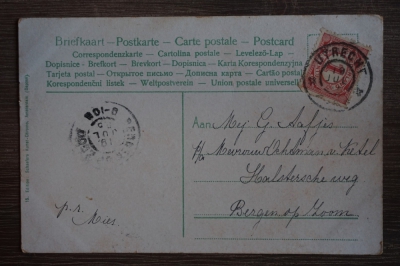 Briefkaart - Postkarte - Carte postale - Postcard
Correspondenzkarte - Cartolina postale - Levelező-Lap -
Dopisnice - Brefkort - Brevkort - Dopisnica - Karta Korespondenzyjna
Tarjeta postal - Открытое письмо - Дописна карта - Cartão postal
Korespondenčni listek - Weltpostverein - Union postale universelle
UTRECHT
Aan
Mej G. Aafjes
p/a Mevrouw
Halstersche weg
Bergen op Zoom
p.r.
Mies